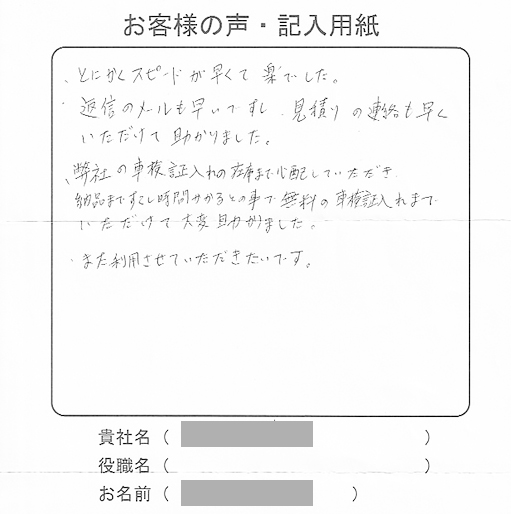 お客様の声・記入用紙
・とにかくスピードが早くて楽でした。
・返信のメールも早いですし、見積りの連絡も早く
いただけて助かりました。
・弊社の車検証入れの在庫まで心配していただき
納品まですこし時間かかるとの事で無料の車検証入れまで
いただけて大変助かりました。
・また利用させていただきたいです。
貴社名（　　　）
役職名（　　　）
お名前（　　　）